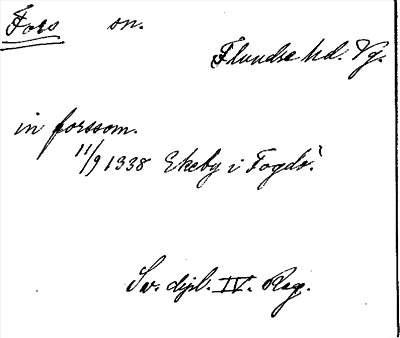 Fors sn.
Flundre hd. Vg.
in forssom.
11/9 1338 Ekeby i Fogdö.
Sv. dipl. IV. Reg.